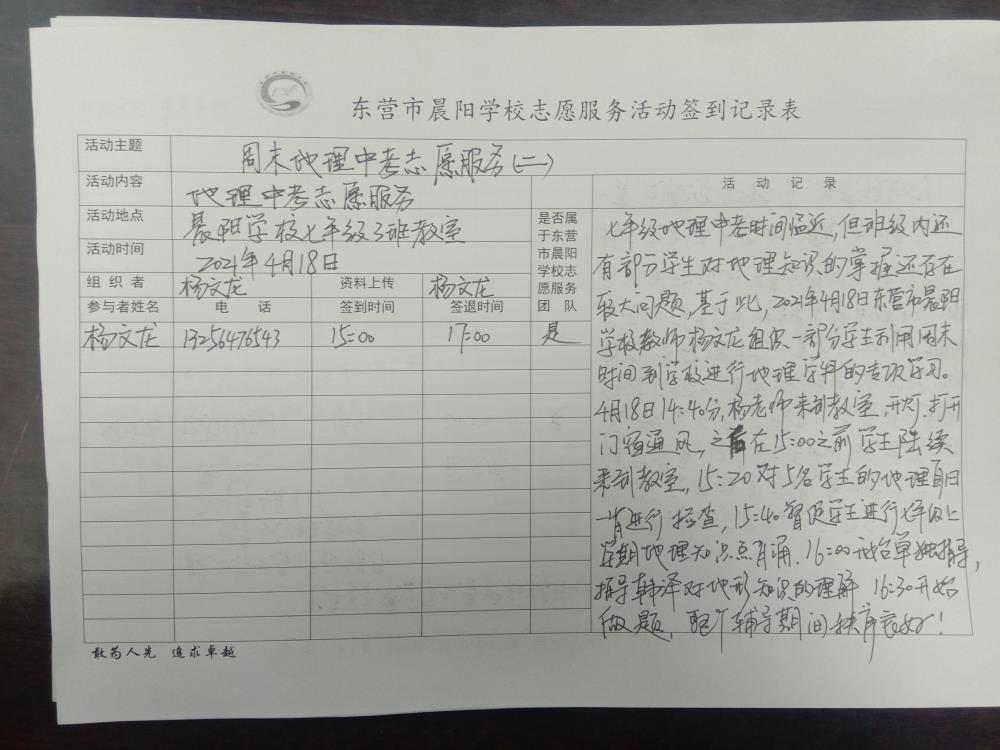 东营市晨阳学校志愿服务活动签到记录表
活动主题 周末地理中考志愿服务(二)
活动内容 地理中考志愿服务
活动地点 晨阳学校七年级3班教室
活动时间 2021年4月18日
组织者 杨文龙 资料上传 杨文龙
参与者姓名 电话 签到时间 签退时间
是否属
于东营
市晨阳
学校志
愿服务
团队
杨文龙 13256476543 15:00 17:00 是
活动记录
七年级地理中考时间临近,但班级内还
有部分学生对地理知识的掌握还存在
较大问题,基于此,2021年4月18日东营市晨阳
学校教师杨文龙组织一部分学生利用周末
时间到学校进行地理学科的专项学习。
4月18日14:40分,杨老师来到教室,开灯,打开
门窗通风,之后在15:00之前学生陆续
来到教室,15:20对5名学生的地理
进行检查,15:40督促学生进行七年级上
学期地理知识点背诵.16:00开始单独指导,
指导韩泽对地形知识的理解 16:30开始
做题,整个辅导期间秩序良好!
敢为人先 追求卓越